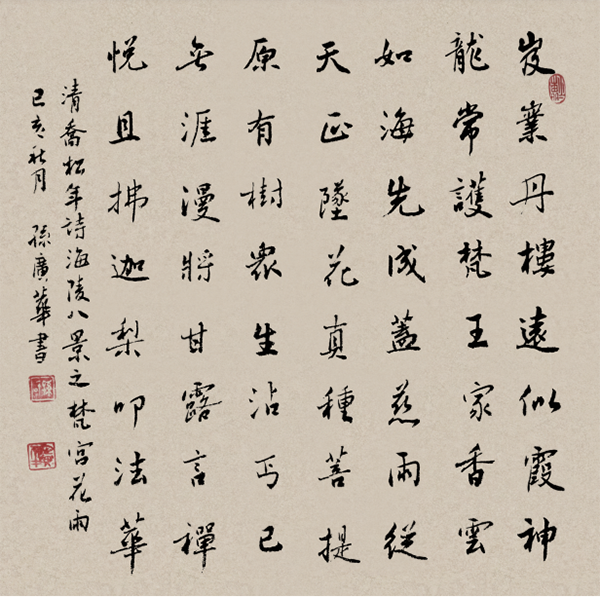 岌業丹樓遠似霞神
龍常護梵王家香雲
如海先成蓋慈雨從
天正墜花真種菩提
原有樹眾生沾丐已
無涯漫將甘露言禪
悅且拂迦梨叩法華
清喬松年詩海陵八景之梵宮花雨
己亥秋月 孫廣華書